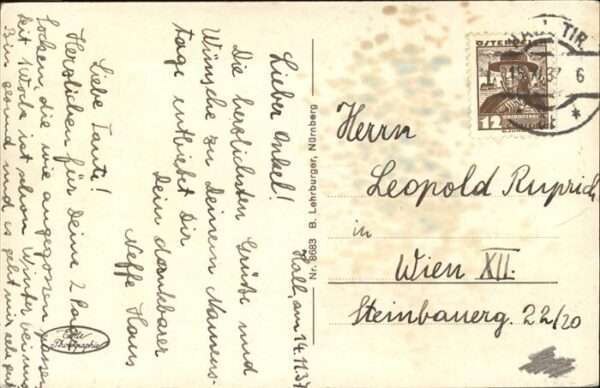 Hall, am 14.11.37
Lieber Onkel!
Die herzlichsten Grüße und
Wünsche zu Deinem Namens-
tage entbietet Dir
Dein dankbarer
Neffe Hans
Liebe Tante!
Herzlichen für Deine 2 Paar
Socken, die wie angegossen passen.
Seit 1 Woche ist schon Winter bei uns
Bin gesund und es geht mir sehr gut
Echte
Photographie
Nr. 8683 B. Lehrburger, Nürnberg
HALL TIR
15. 37 6
*
ÖSTERREICH
12
Herrn
Leopold Ruprich
in
Wien XII.
Steinbauerg. 22/20